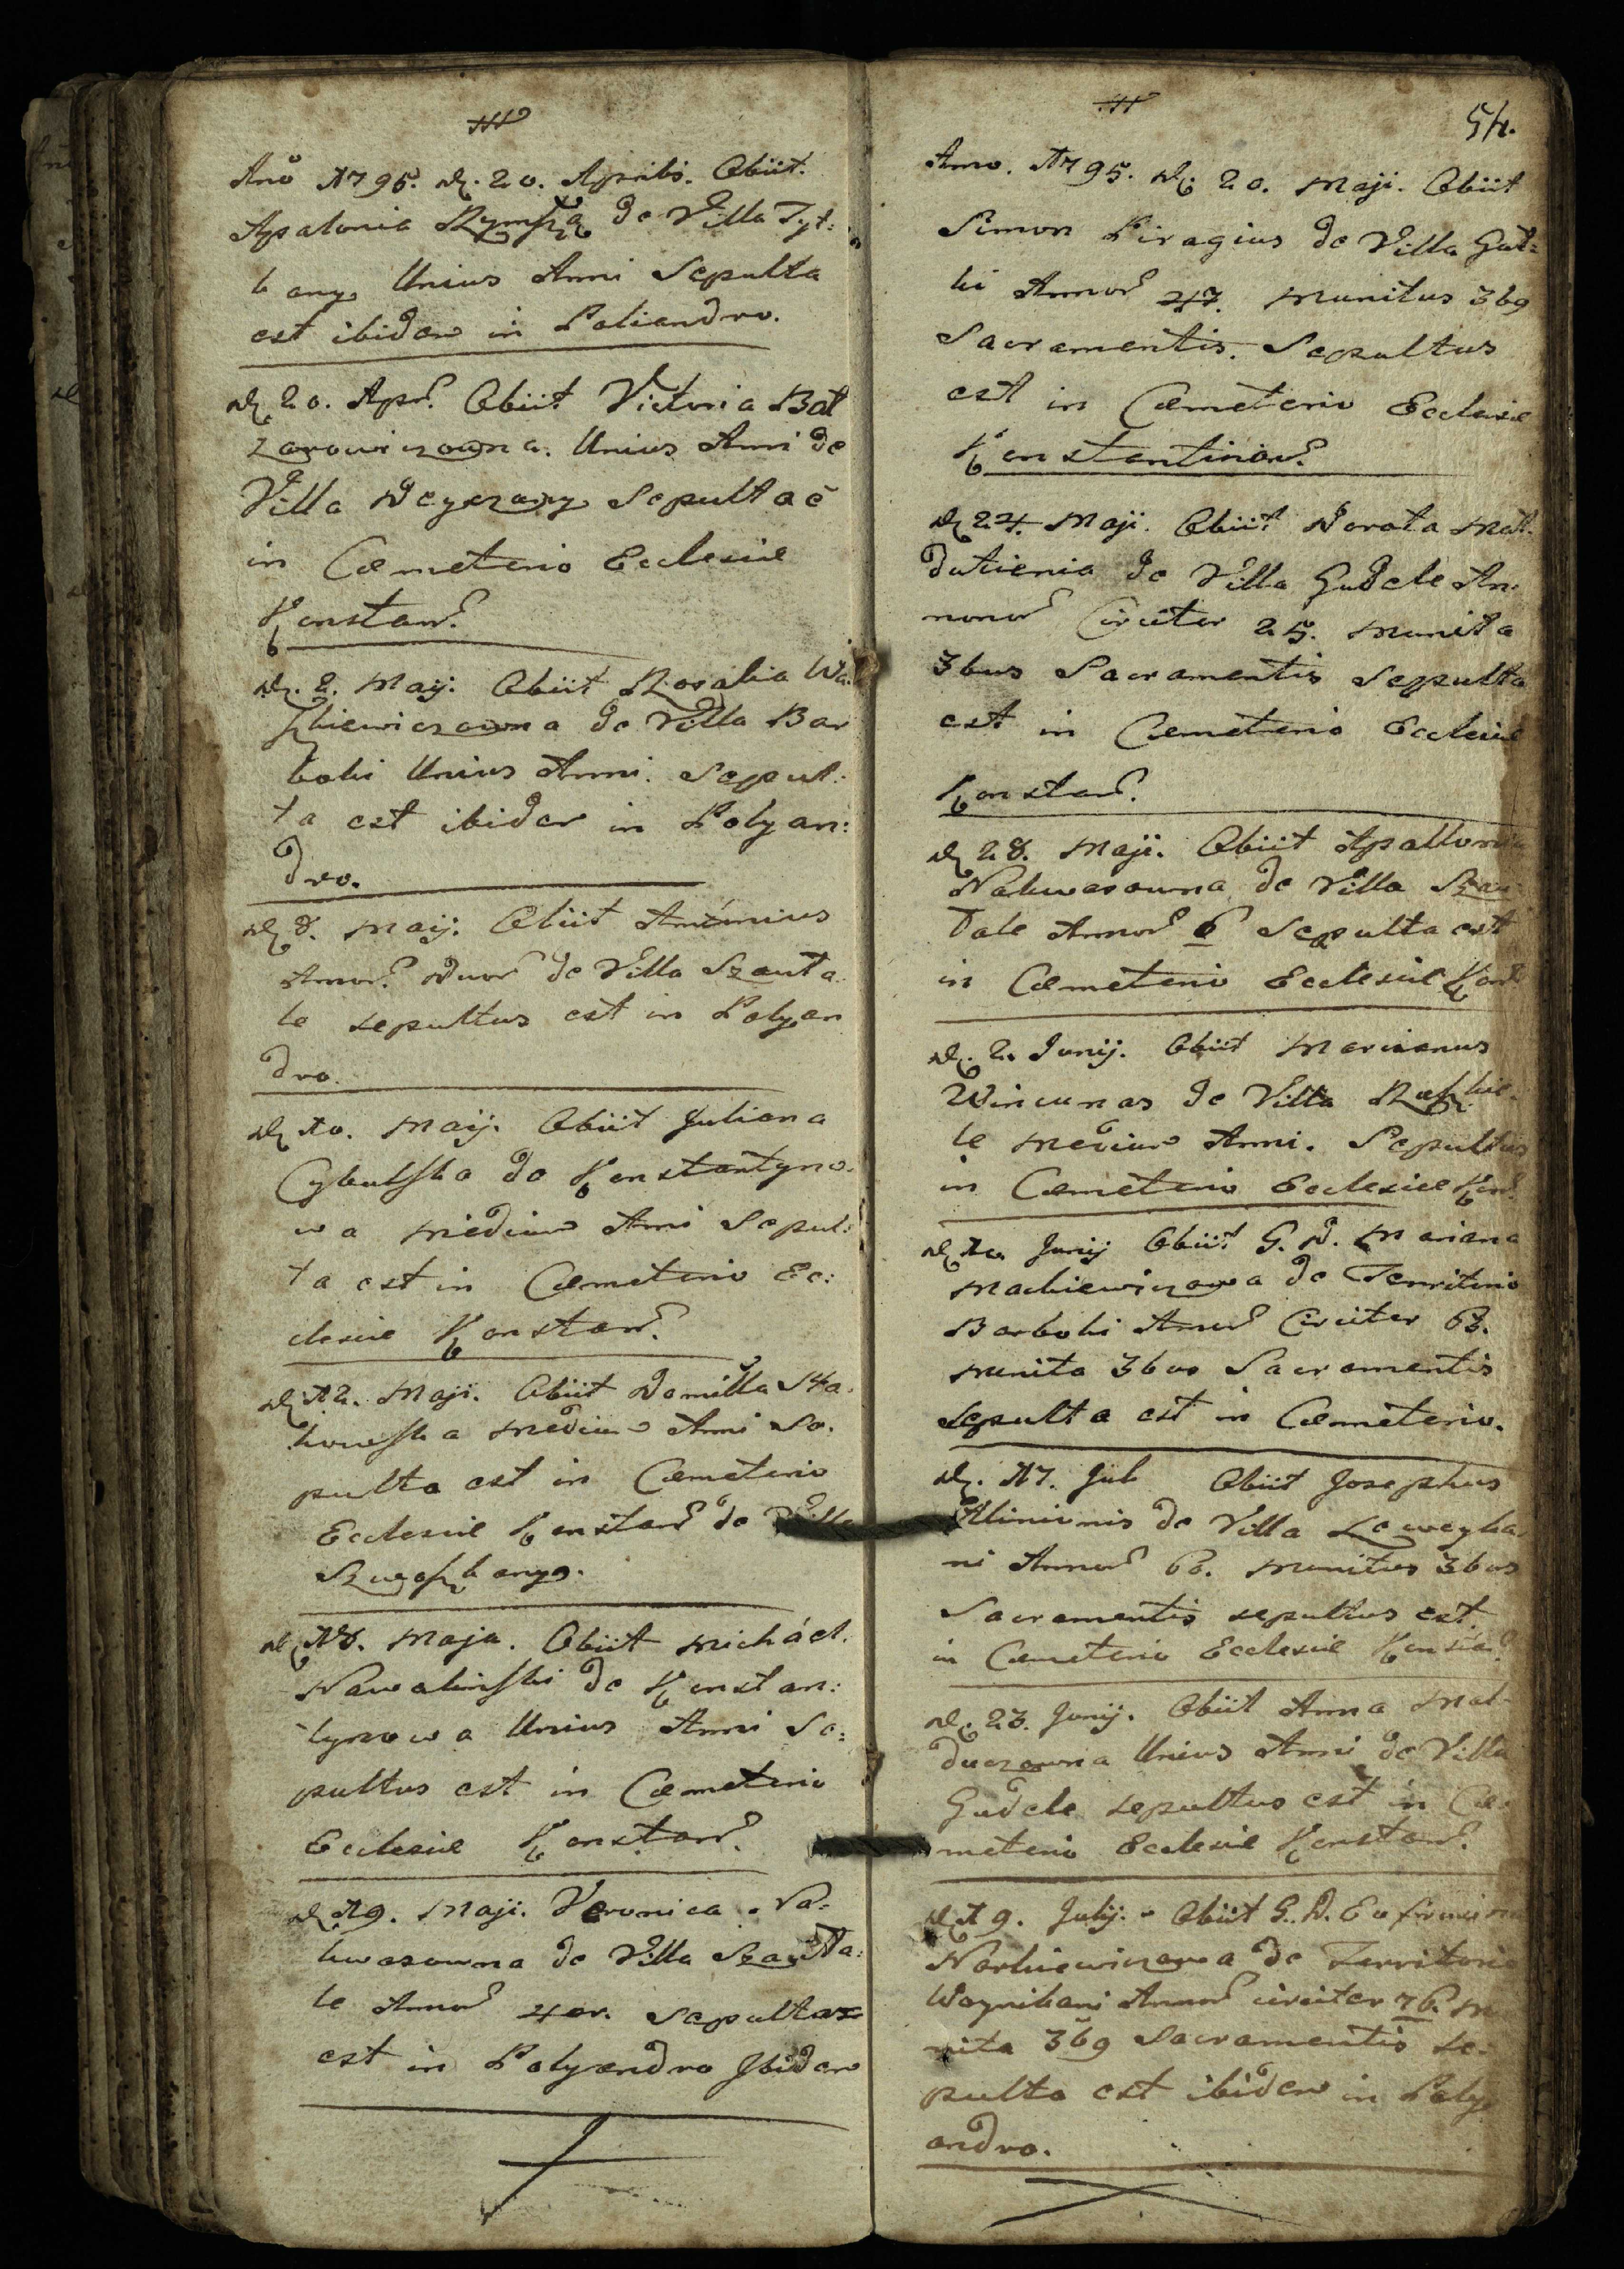 Ano 1795. D. 20. Aprilis. Obiit.
Apalonia Rymsza de Villa Tyt:
kany Unius Anni Sepulta
est ibidem in Poliandro.
D 20. Apr. Obiit Victoria Bal
zarowiczowna. Unius Anni de
Villa Deyczany Sepulta ẽ
in Cœmeterio Ecclesiæ
Konstan.
D. 2. Maij. Obiit Rosalia Wa
szkiewiczowna de Villa Bar
boki Unius Anni. Sepul:
ta est ibidem in Polyan:
dro.
D 8. Maij. Obiit
Annor. Duor de Villa Szanta
le sepultus est in Polyan
dro.
D 10. Maij. Obiit Juliana
Cybulska de Konstantyno.
wa medium Anni Sepul:
ta est in Cœmeterio Ec:
clesiæ Konstan.
D 12. Maji. Obiit Domilla Sta.
kowska medium Anni Se.
pulta est in Cœmeterio
Ecclesiæ Konstan de Villa
Szwaszkany.
D 18. Maja. Obiit Micháel.
Nawalinski de Konstan:
tynowa Unius Anni Se:
pultus est in Cœmeterio
Ecclesiæ Konstan.
D 19. Maji. Veronica. Na:
kwasowna de Villa Szanta:
le Annor 4or. Sepulta
est in Polyandro Ibidem
III
54.
Anno. 1795. D. 20. Maji. Obiit
Simon Piragius de Villa Gut:
ki Annor 47. Munitus 3b9
Sacramentis. Sepultus
est in Cœmeterio Ecclesiæ
Konstantinov.
D 24. Maji. Obiit Dorota Mal.
dutienia de Villa Gudele An:
noror Circiter 25. Munita
3bus Sacramentis Sepulta
est in Cœmeterio Ecclesiæ
Konstan.
D 28. Maji. Obiit Apallonia
Nakwasowna de Villa Szan
tale Annor 6 Sepulta est
in Cœmeterio Ecclesiæ Kon
D. 2. Junij. Obiit Marianus
Wincunas de Villa
le medium Anni. Sepultus
in Cœmeterio Ecclesiæ Kon.
D 10 Junij Obiit G. D. Mariana
Mackiewiczowa de Territorio
Barboki Annor Circiter 63.
munita 3bus Sacramentis
sepulta est in Cœmeterio.
D. 17. Jul Obiit Josephus
Klimionis de Villa Laweyka
ni Annor 60. Munitus 3bus
Sacramentis sepultus est
in Cœmeterio Ecclesiæ
D. 23. Junij. Obiit Anna Mal
duczowna Unius Anni de Villa
Gudele sepultus est in Cæ
meterio Ecclesiæ Konstan.
D 19. Julij. Obiit G. D. Eufrosina
Narkiewiczowa de Territorio
Woynikani Annor circiter 76. Mu
nita 3b9 Sacramentis Se:
pulta est ibidem in Poly
andro.